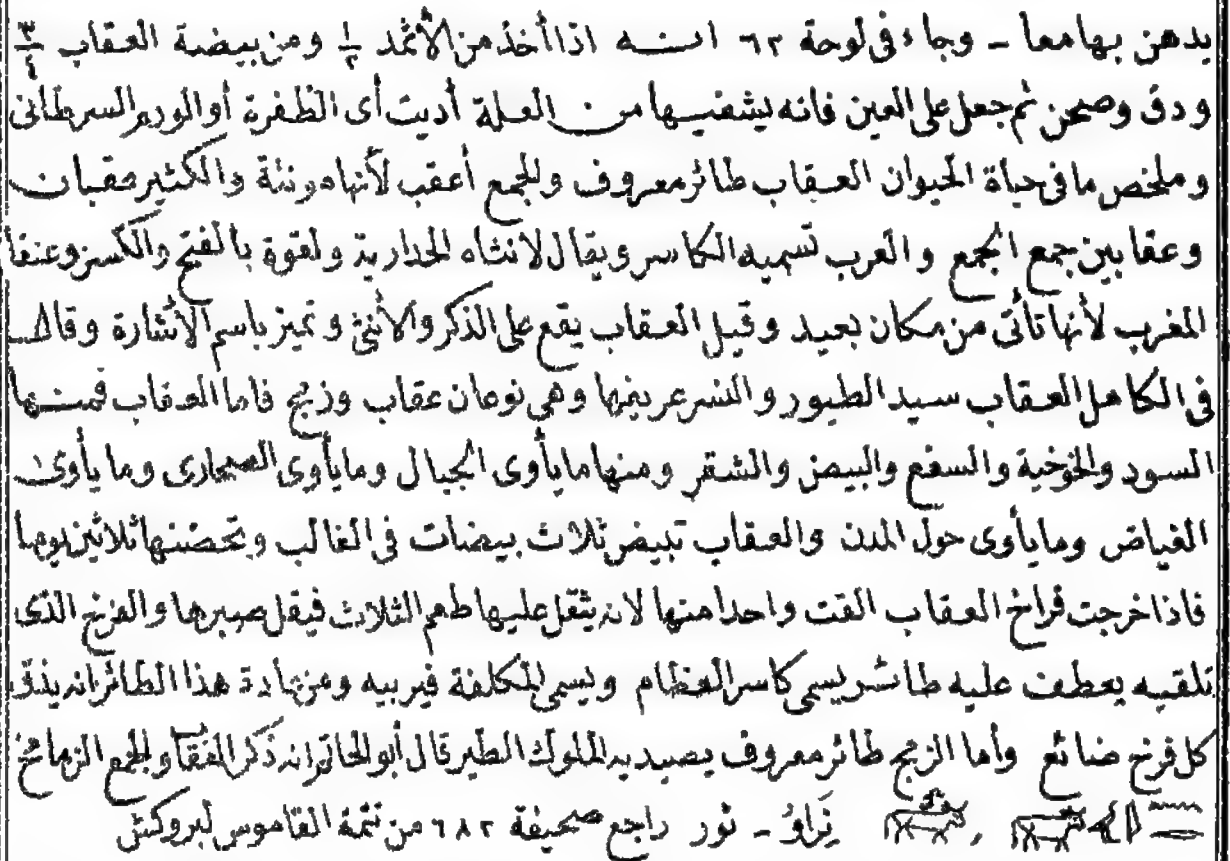 يدهن بها معا - وجاء فى لوحة ٦٢ انـــه اذا أخذ من الأثمد ١/٢ ومن بيضة العقاب ٣/٤
ودق وصحن ثم جعل على العين فانه يشفيها من العلة أديت أى الظفرة أو الورم السرطانى
وملخص ما فى حياة الحيوان العقاب طائر معروف والجمع أعقب لأنها مونثة والكثير عقبان
وعقابين جمع الجمع والعرب تسميه الكاسر ويقال لانثاه الخدارية ولقوة بالفتح والكسر وعنقا
المغرب لأنها تأتى من مكان بعيد وقيل العقاب يقع على الذكر والأنثى وتميز باسم الأشارة وقال
فى الكامل العقاب سيد الطيور والنسر عريفها وهى نوعان عقاب وزمج فاما العقاب فمنها
السود والخوخية والسفع والبيض والشقر ومنها ما يأوى الجبال وما يأوى الصحارى وما يأوى
الغياض وما يأوى حول المدن والعقاب تبيض ثلاث بيضات فى الغالب وتحضنها ثلاثين يوما
فاذا خرجت فراخ العقاب القت واحدا منها لانه يثقل عليها طعم الثلاث فيقل صبرها والفرخ الذى
تلقيه يعطف عليه طائر يسمى كاسر العظام ويسمى المكلفة فيربيه ومن عادة هذا الطائر انه يزق
كل فرخ ضائع وأما الزمج طائر معروف يصيد به الملوك الطير قال أبو الحاتم انه ذكر العقاب والجمع الزمامج
نراو - ثور راجع صحيفة ٦٨٢ من تتمة القاموس لبروكش